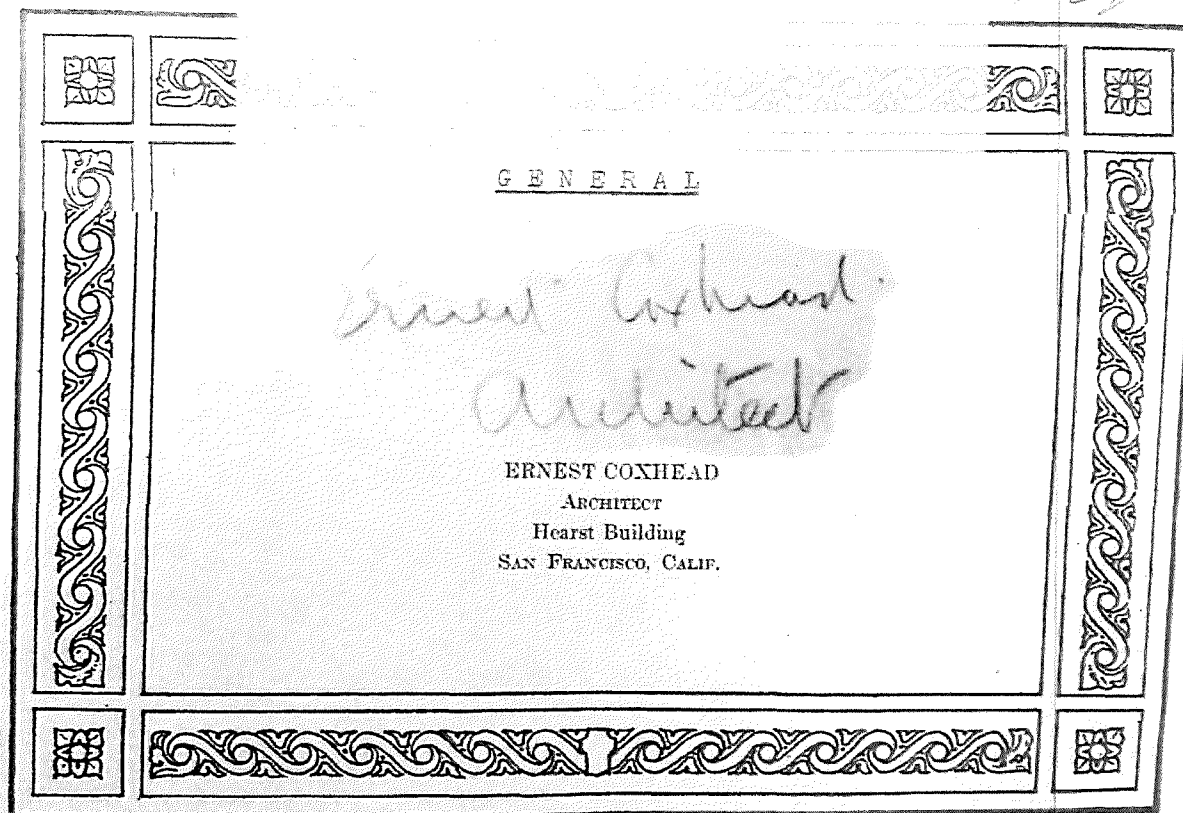 G E N E R A L
Ernest Coxhead.
Architect
ERNEST COXHEAD
ARCHITECT
Hearst Building
SAN FRANCISCO, CALIF.